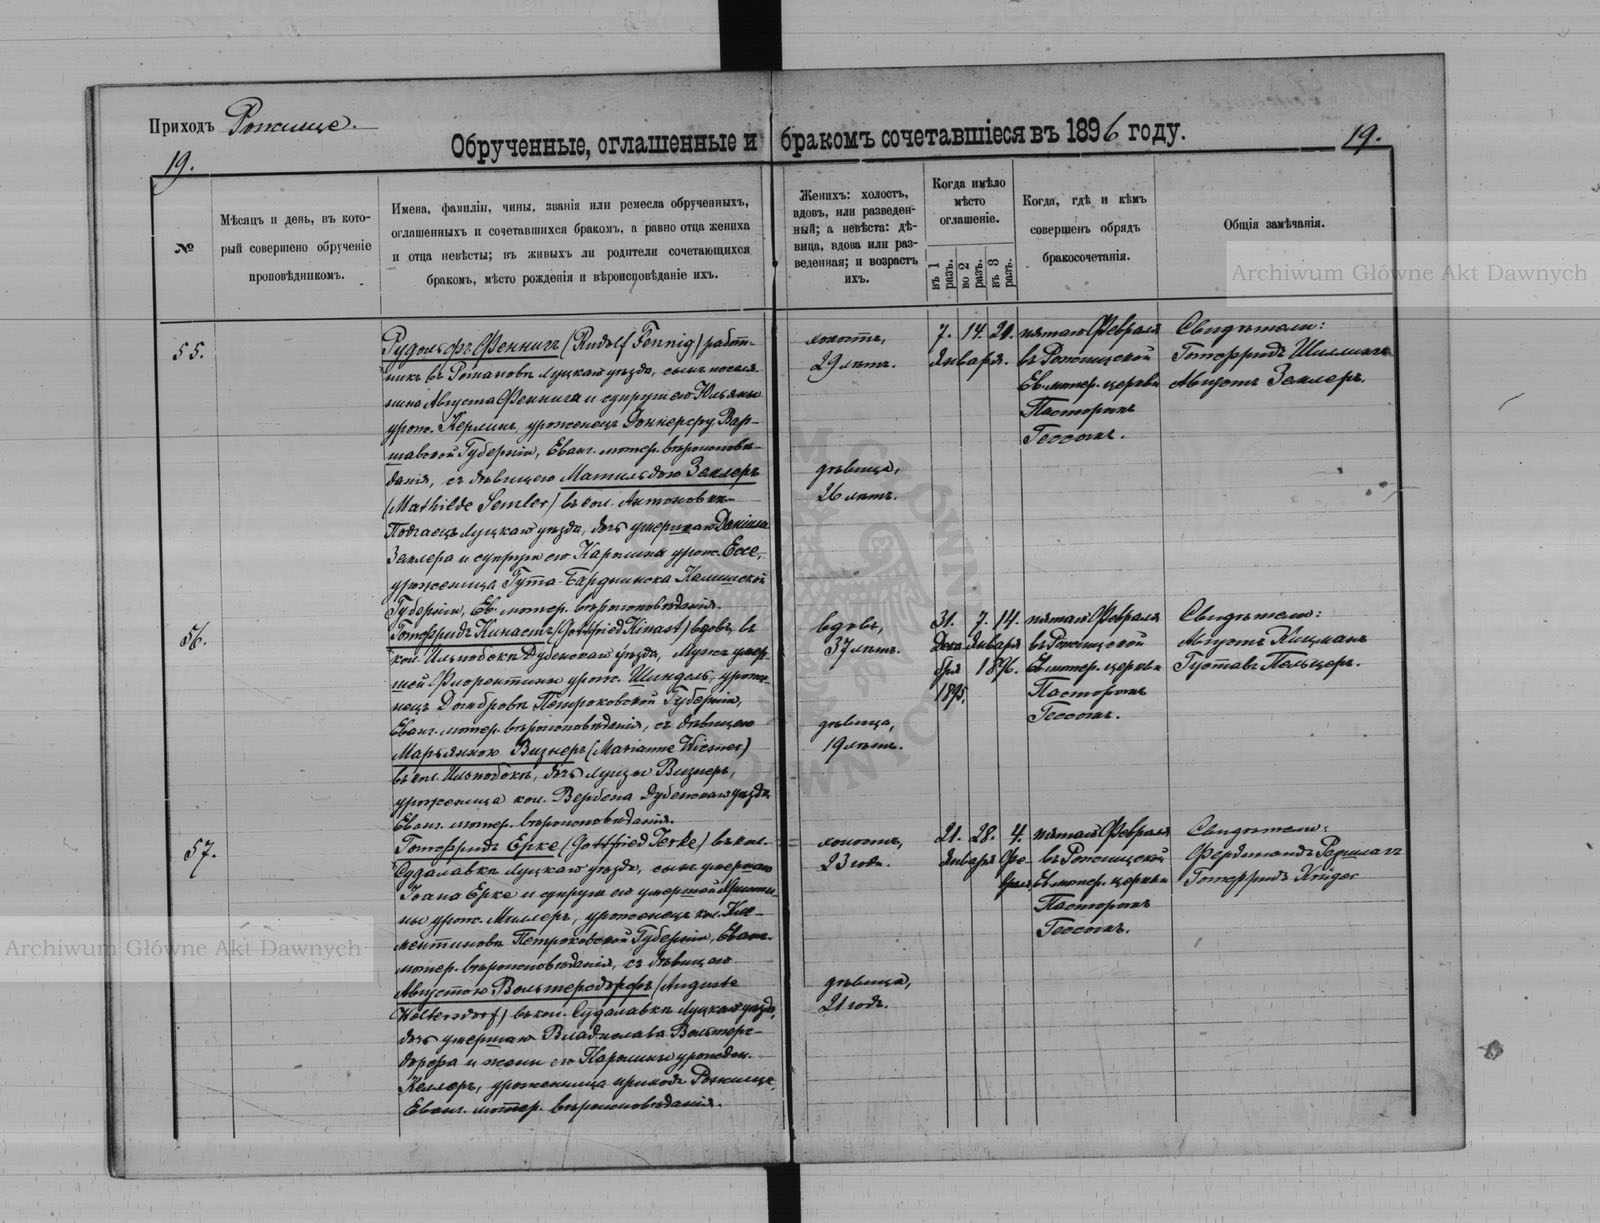 Приходъ Рожище.
Обрученные, оглашенные и бракомъ сочетавшіеся въ 1896 году.
19.
19.
№
Мѣсяцъ и день, въ кото-
рый совершено обрученіе
проповѣдникомъ.
Имена, фамиліи, чины, званія или ремесла обрученныхъ,
оглашенныхъ и сочетавшихся бракомъ, а равно отца жениха
и отца невѣсты; въ живыхъ ли родители сочетающихся
бракомъ, мѣсто рожденія и вѣроисповѣданіе ихъ.
Женихъ: холостъ,
вдовъ, или разведен-
ный; а невѣста: дѣ-
вица, вдова или раз-
веденная; и возрастъ
ихъ.
Когда имѣло
мѣсто
оглашеніе.
въ 1 разъ.
во 2 разъ.
въ 3 разъ.
Когда, гдѣ и кѣмъ
совершенъ обрядъ
бракосочетанія.
Общія замѣчанія.
Archiwum Główne Akt Dawnych
55.
Рудольфъ Феннигъ (Rudolf Fennig) работ-
никъ въ Романовѣ Луцкаго уѣзда, сынъ поселя-
нина Августа Феннига и супруги его Юльяны
урож. Керлинъ, уроженецъ Доннерсру Вар-
шавской Губерніи, Еванг. лютер. вѣроисповѣ-
данія, съ дѣвицею Матильдою Землеръ
(Mathilde Semler) въ кол. Антоновка-
Подгаецъ Луцкаго уѣзда, дочь умершаго Даніила
Землера и супруги его Каролины урож. Ессе,
уроженица Гута-Бардзинска Калишской
Губерніи, Ев. лютер. вѣроисповѣданія.
холостъ,
29 лѣтъ.
дѣвица,
26 лѣтъ.
7. 14. 21.
Января.
пятаго Февраля
въ Рожищской
Ев. лютер. церкви
Пасторомъ
Гессомъ.
Свидѣтели:
Готфридъ Шиллингъ
Августъ Землеръ.
56.
Готфридъ Кинастъ (Gottfried Kinast) вдовъ, въ
кол. Ильпибоки Дубенскаго уѣзда, мужъ умер-
шей Флорентины урож. Шиндель, уроже-
нецъ Домбровъ Петроковской Губерніи,
Еванг. лютер. вѣроисповѣданія, съ дѣвицею
Марьянною Визнеръ (Marianne Wiesner)
въ кол. Ильпибоки, дочь Луизы Визнеръ,
уроженица кол. Верба Дубенскаго уѣзда
Еванг. лютер. вѣроисповѣданія.
вдовъ,
37 лѣтъ.
дѣвица,
19 лѣтъ.
31. 7. 14.
Дека- Января
бря 1896.
1895.
пятаго Февраля
въ Рожищской
Ев. лютер. церкви
Пасторомъ
Гессомъ.
Свидѣтели:
Августъ Кицманъ
Густавъ Пельцеръ.
57.
Готфридъ Ерке (Gottfried Jerke) въ кол.
Судалавкѣ Луцкаго уѣзда, сынъ умершаго
Іоана Ерке и супруги его умершей Христи-
ны урож. Миллеръ, уроженецъ кол. Кле-
ментиновъ Петроковской Губерніи, Еванг.
лютер. вѣроисповѣданія, съ дѣвицею
Августою Вольтерсдорфъ (Auguste
Woltersdorf) въ кол. Судалавкѣ Луцкаго уѣзда,
дочь умершаго Владислава Вольтерс-
дорфа и жены его Каролины урожден.
Келлеръ, уроженица прихода Рожище,
Еванг. лютер. вѣроисповѣданія.
холостъ,
23 года.
дѣвица,
21 годъ.
21. 28. 4.
Января Фе-
враля
пятаго Февраля
въ Рожищской
Ев. лютер. церкви
Пасторомъ
Гессомъ.
Свидѣтели:
Фердинандъ
Готфридъ Krüger
Archiwum Główne Akt Dawnych